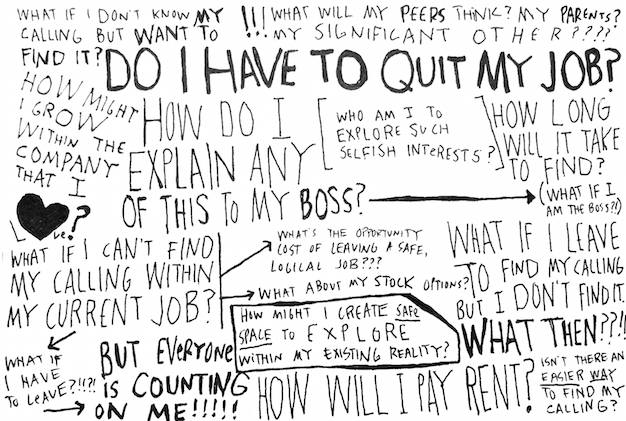 WHAT IF I DON'T KNOW MY
CALLING BUT WANT TO
FIND IT?
!!! WHAT WILL MY PEERS THINK? MY PARENTS?
MY SIGNIFICANT OTHER????
DO I HAVE TO QUIT MY JOB?
HOW MIGHT
I GROW
WITHIN THE
COMPANY
THAT I
Love?
HOW DO I
EXPLAIN ANY
OF THIS TO MY BOSS?
WHO AM I TO
EXPLORE SUCH
SELFISH INTERESTS?
HOW LONG
WILL IT TAKE
TO FIND?
(WHAT IF I
AM THE BOSS?!)
WHAT IF I CAN'T FIND
MY CALLING WITHIN
MY CURRENT JOB?
WHAT'S THE OPPORTUNITY
COST OF LEAVING A SAFE,
LOGICAL JOB???
WHAT ABOUT MY STOCK OPTIONS?
HOW MIGHT I CREATE SAFE
SPACE TO EXPLORE
WITHIN MY EXISTING REALITY?
WHAT IF I LEAVE
TO FIND MY CALLING
BUT I DON'T FIND IT.
WHAT THEN??!!
WHAT IF
I HAVE
TO LEAVE?!!?!
BUT EVERYONE
IS COUNTING
ON ME!!!!!
HOW WILL I PAY RENT?
ISN'T THERE AN
EASIER WAY
TO FIND MY
CALLING?